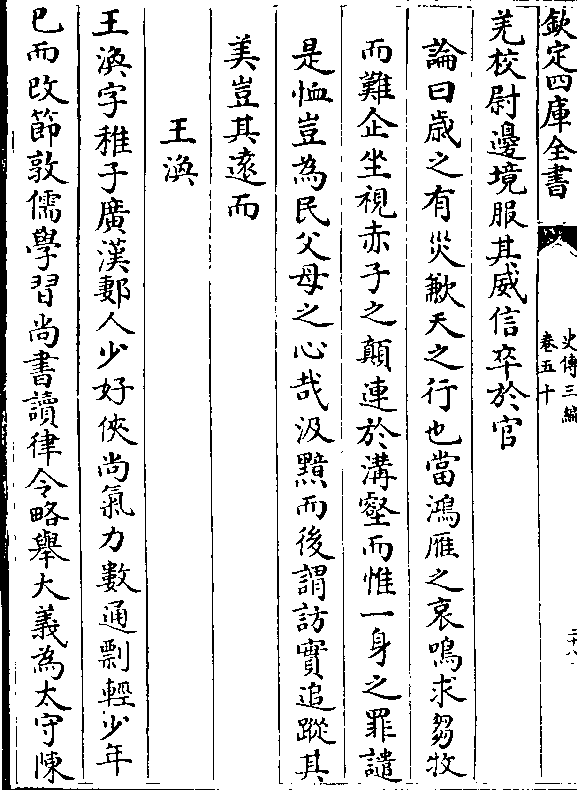 欽定四庫全書
史傳三編
卷五十
羌校尉邊境服其威信卒於官
論曰歲之有災歉天之行也當鴻雁之哀鳴求芻牧
而難企坐視赤子之顛連於溝壑而惟一身之罪譴
是恤豈為民父母之心哉汲黯而後謂訪實追蹤其
美豈其遠而
王渙
王渙字稚子廣漢郪人少好俠尚氣力數通剽輕少年
已而改節敦儒學習尚書讀律令略舉大義為太守陳